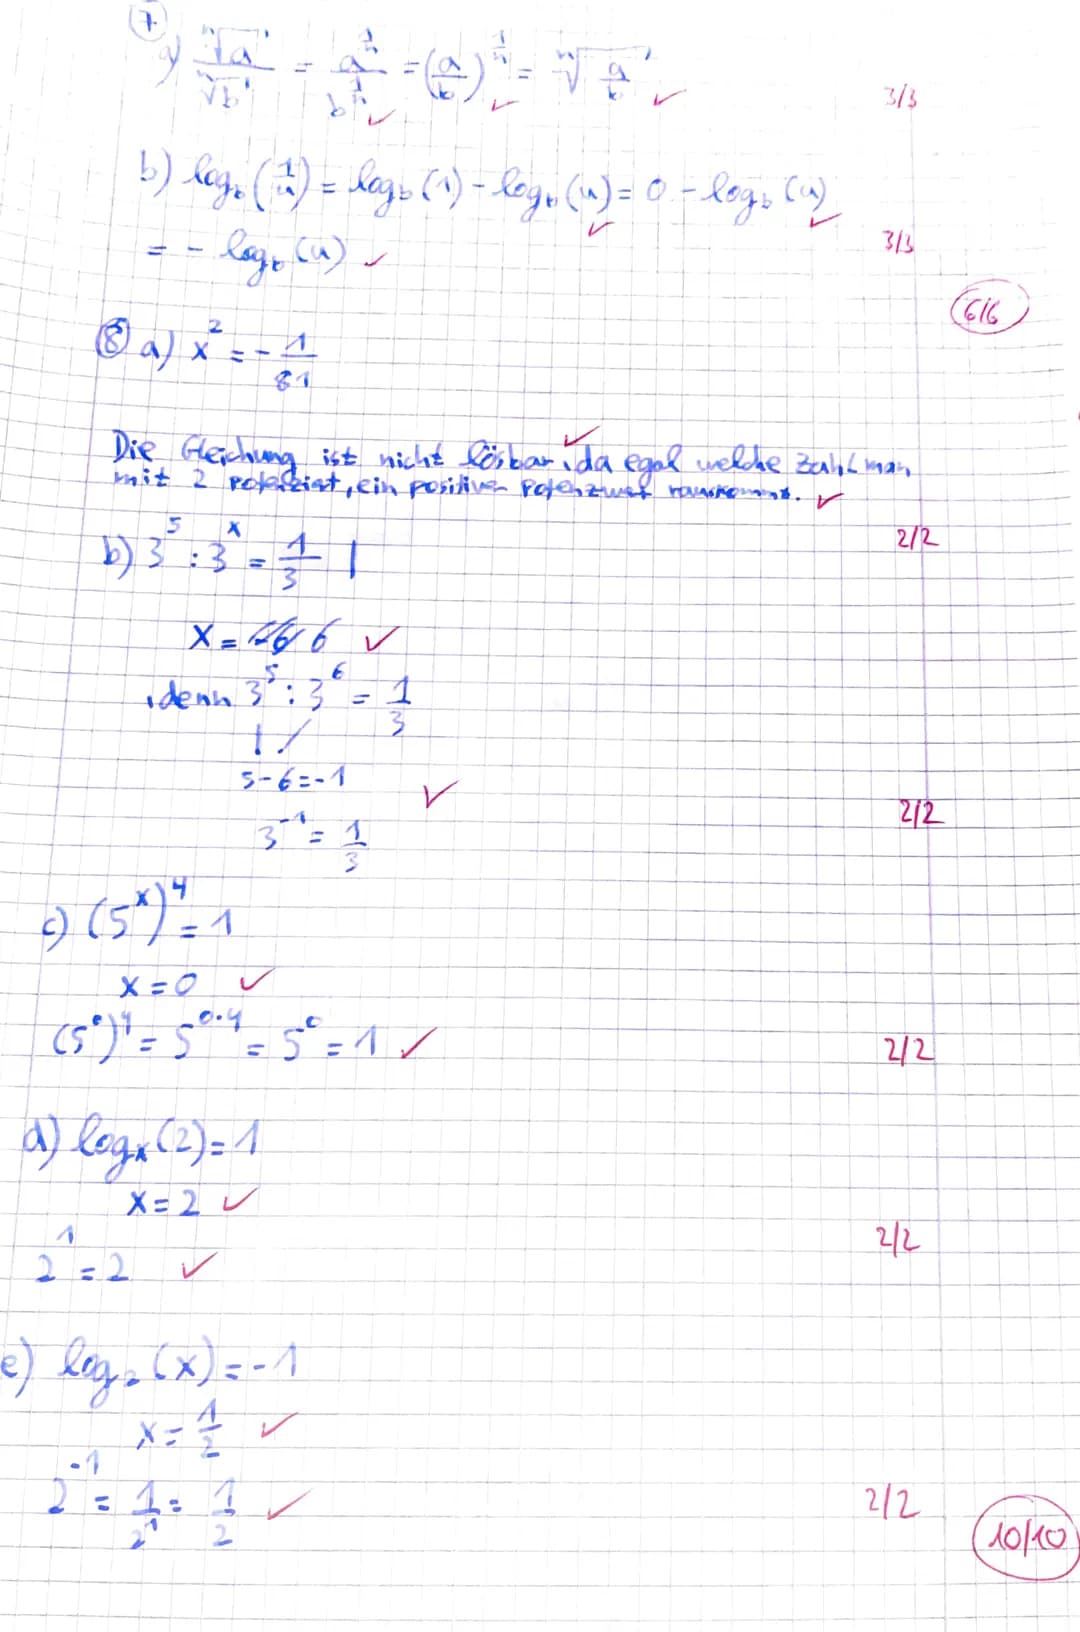 7
a) ⁿ√a / ⁿ√b = a^(1/n) / b^(1/n) = (a/b)^(1/n) = ⁿ√(a/b) 3/3
b) log_b (1/u) = log_b (1) - log_b (u) = 0 - log_b (u)
= - log_b (u) 3/3
6/6
8 a) x² = - 1/81
Die Gleichung ist nicht lösbar, da egal welche Zahl man
mit 2 potenziert, ein positiver Potenzwert rauskommt.
2/2
b) 3⁵ : 3ˣ = 1/3 |
x = 6
, denn 3⁵ : 3⁶ = 1/3
5-6=-1
2/2
3⁻¹ = 1/3
c) (5ˣ)⁴ = 1
x = 0
(5⁰)⁴ = 5^(0·4) = 5⁰ = 1 2/2
d) log_x (2) = 1
x = 2
2¹ = 2 2/2
e) log₂ (x) = -1
x = 1/2
2⁻¹ = 1/2¹ = 1/2 2/2
10/10